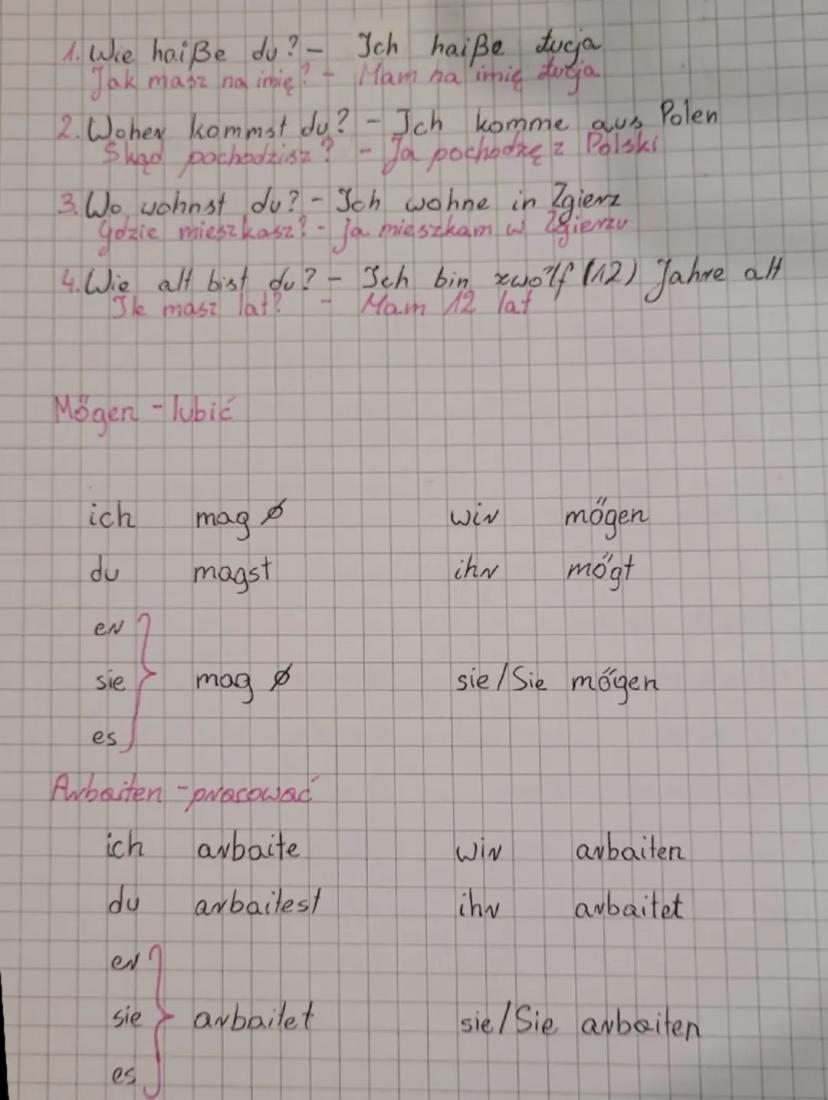 1. Wie haiße du? - Ich haiße Łucja
Jak masz na imię? - Mam na imię Łucja
2. Woher kommst du? - Ich komme aus Polen
Skąd pochodzisz? - Ja pochodzę z Polski
3. Wo wohnst du? - Ich wohne in Zgierz
Gdzie mieszkasz? - ja mieszkam w Zgierzu
4. Wie alt bist du? - Ich bin zwölf (12) Jahre alt
Ile masz lat? - Mam 12 lat
Mögen - lubić
ich mag ø wir mögen
du magst ihr mögt
er
sie mag ø sie/Sie mögen
es
Arbaiten - pracować
ich arbaite wir arbaiten
du arbaitest ihr arbaitet
er
sie arbaitet sie/Sie arbaiten
es